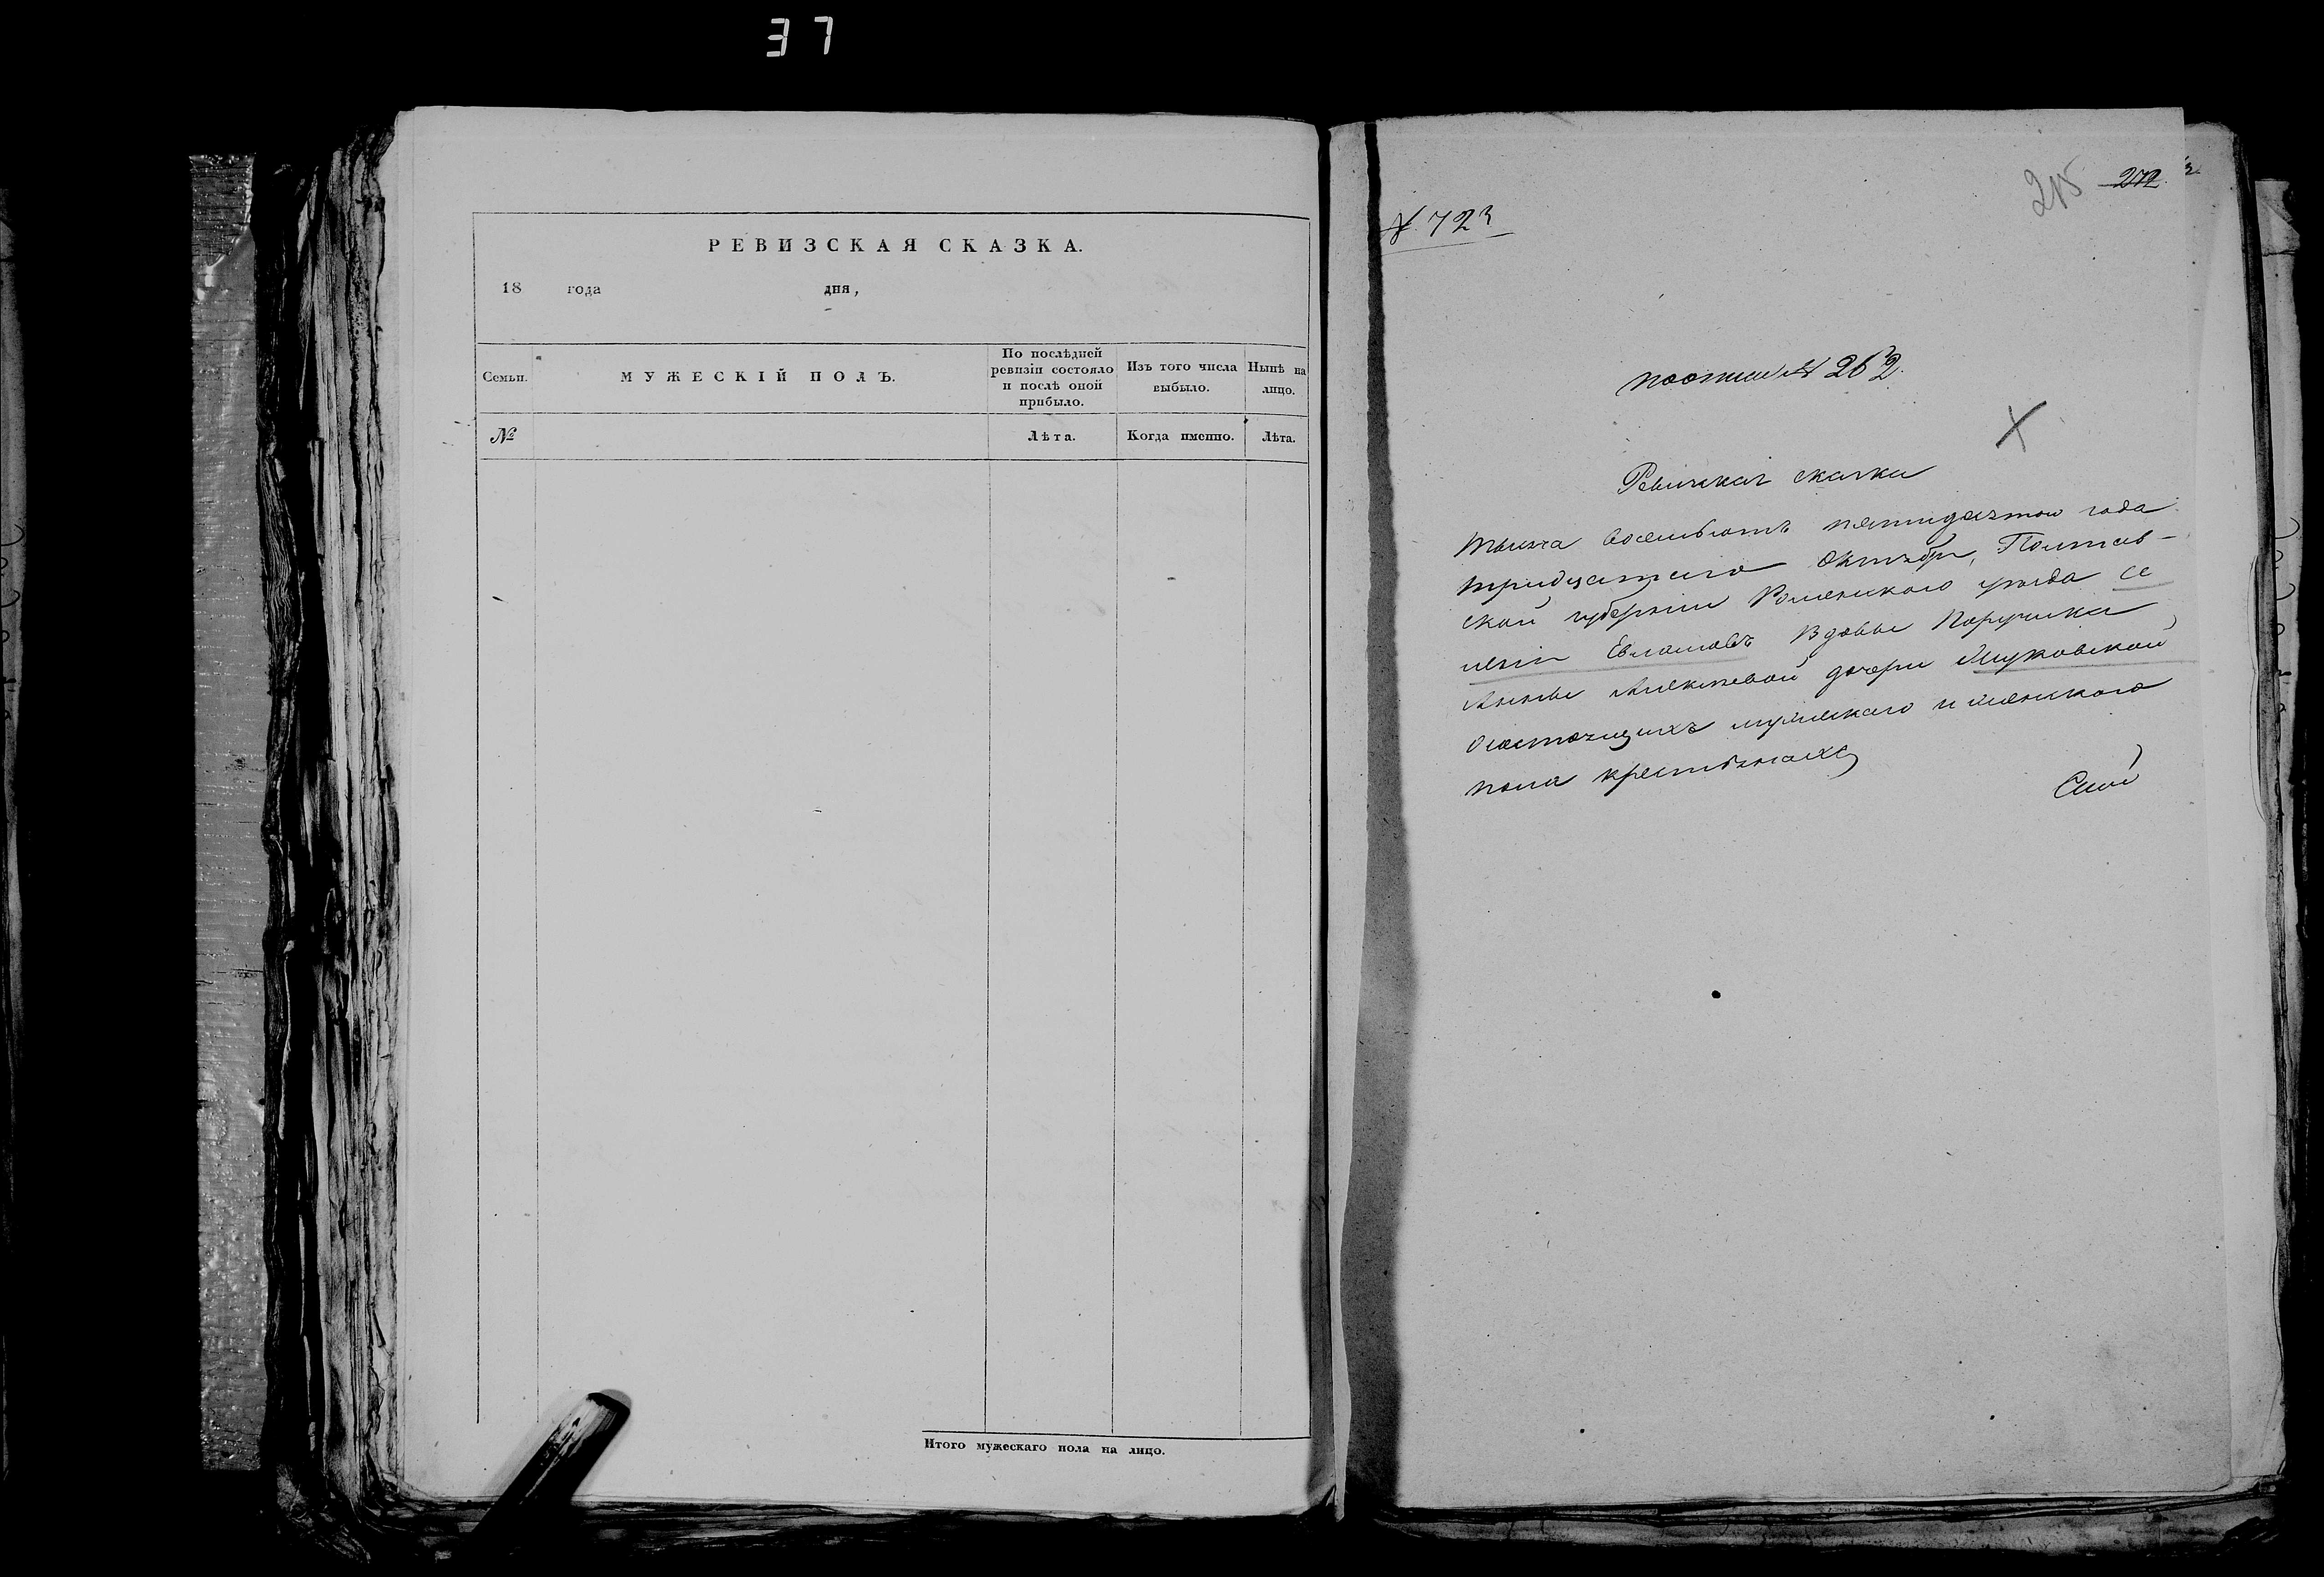 37
РЕВИЗСКАЯ СКАЗКА.
18 года дня,
Семьи.
МУЖЕСКІЙ ПОЛЪ.
По послѣдней ревизіи состояло и послѣ оной прибыло.
Изъ того числа выбыло.
Нынѣ на лицо.
№
Лѣта.
Когда именно.
Лѣта.
Итого мужескаго пола на лицо.
215 272
№ 723
по описи № 262
Ревизская сказка
тысяча восемьсотъ пятидесятого года
тридцатого октября, Полтав-
ской губерніи Роменского уезда се
ленія вдовы Поручика
Анны Алексеевой дочери
о состоящихъ мужескаго и женского
пола крестьянахъ